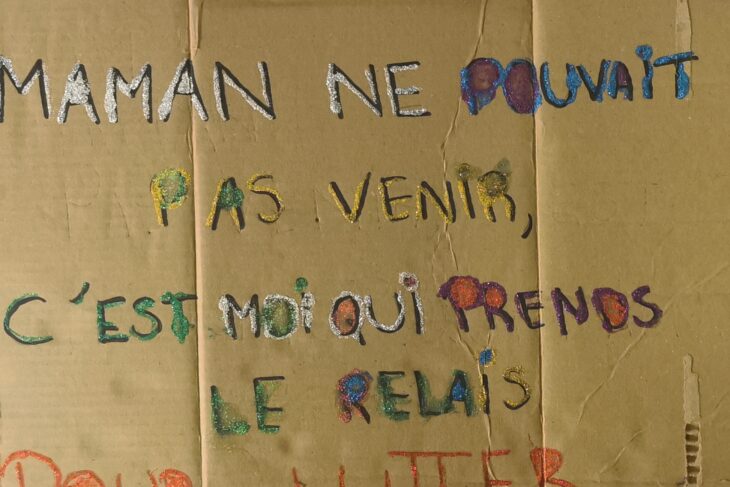 MAMAN NE POUVAIT
PAS VENIR,
C'EST MOI QUI PRENDS
LE RELAIS
POUR LUTTER